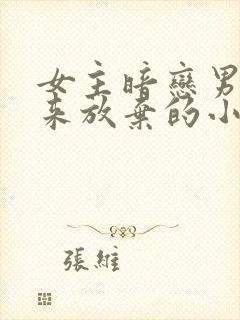 女主暗戀男
來放棄的小
張維